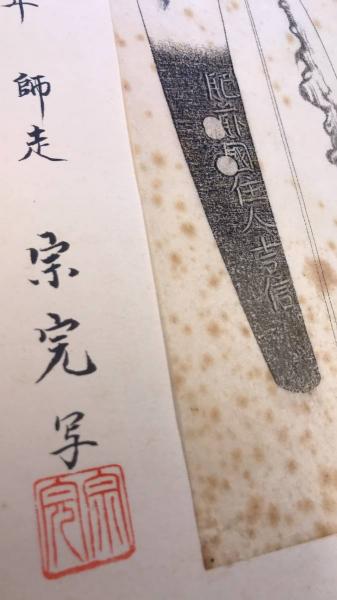 肥前國住人吉信
師走
宗完写
宗完